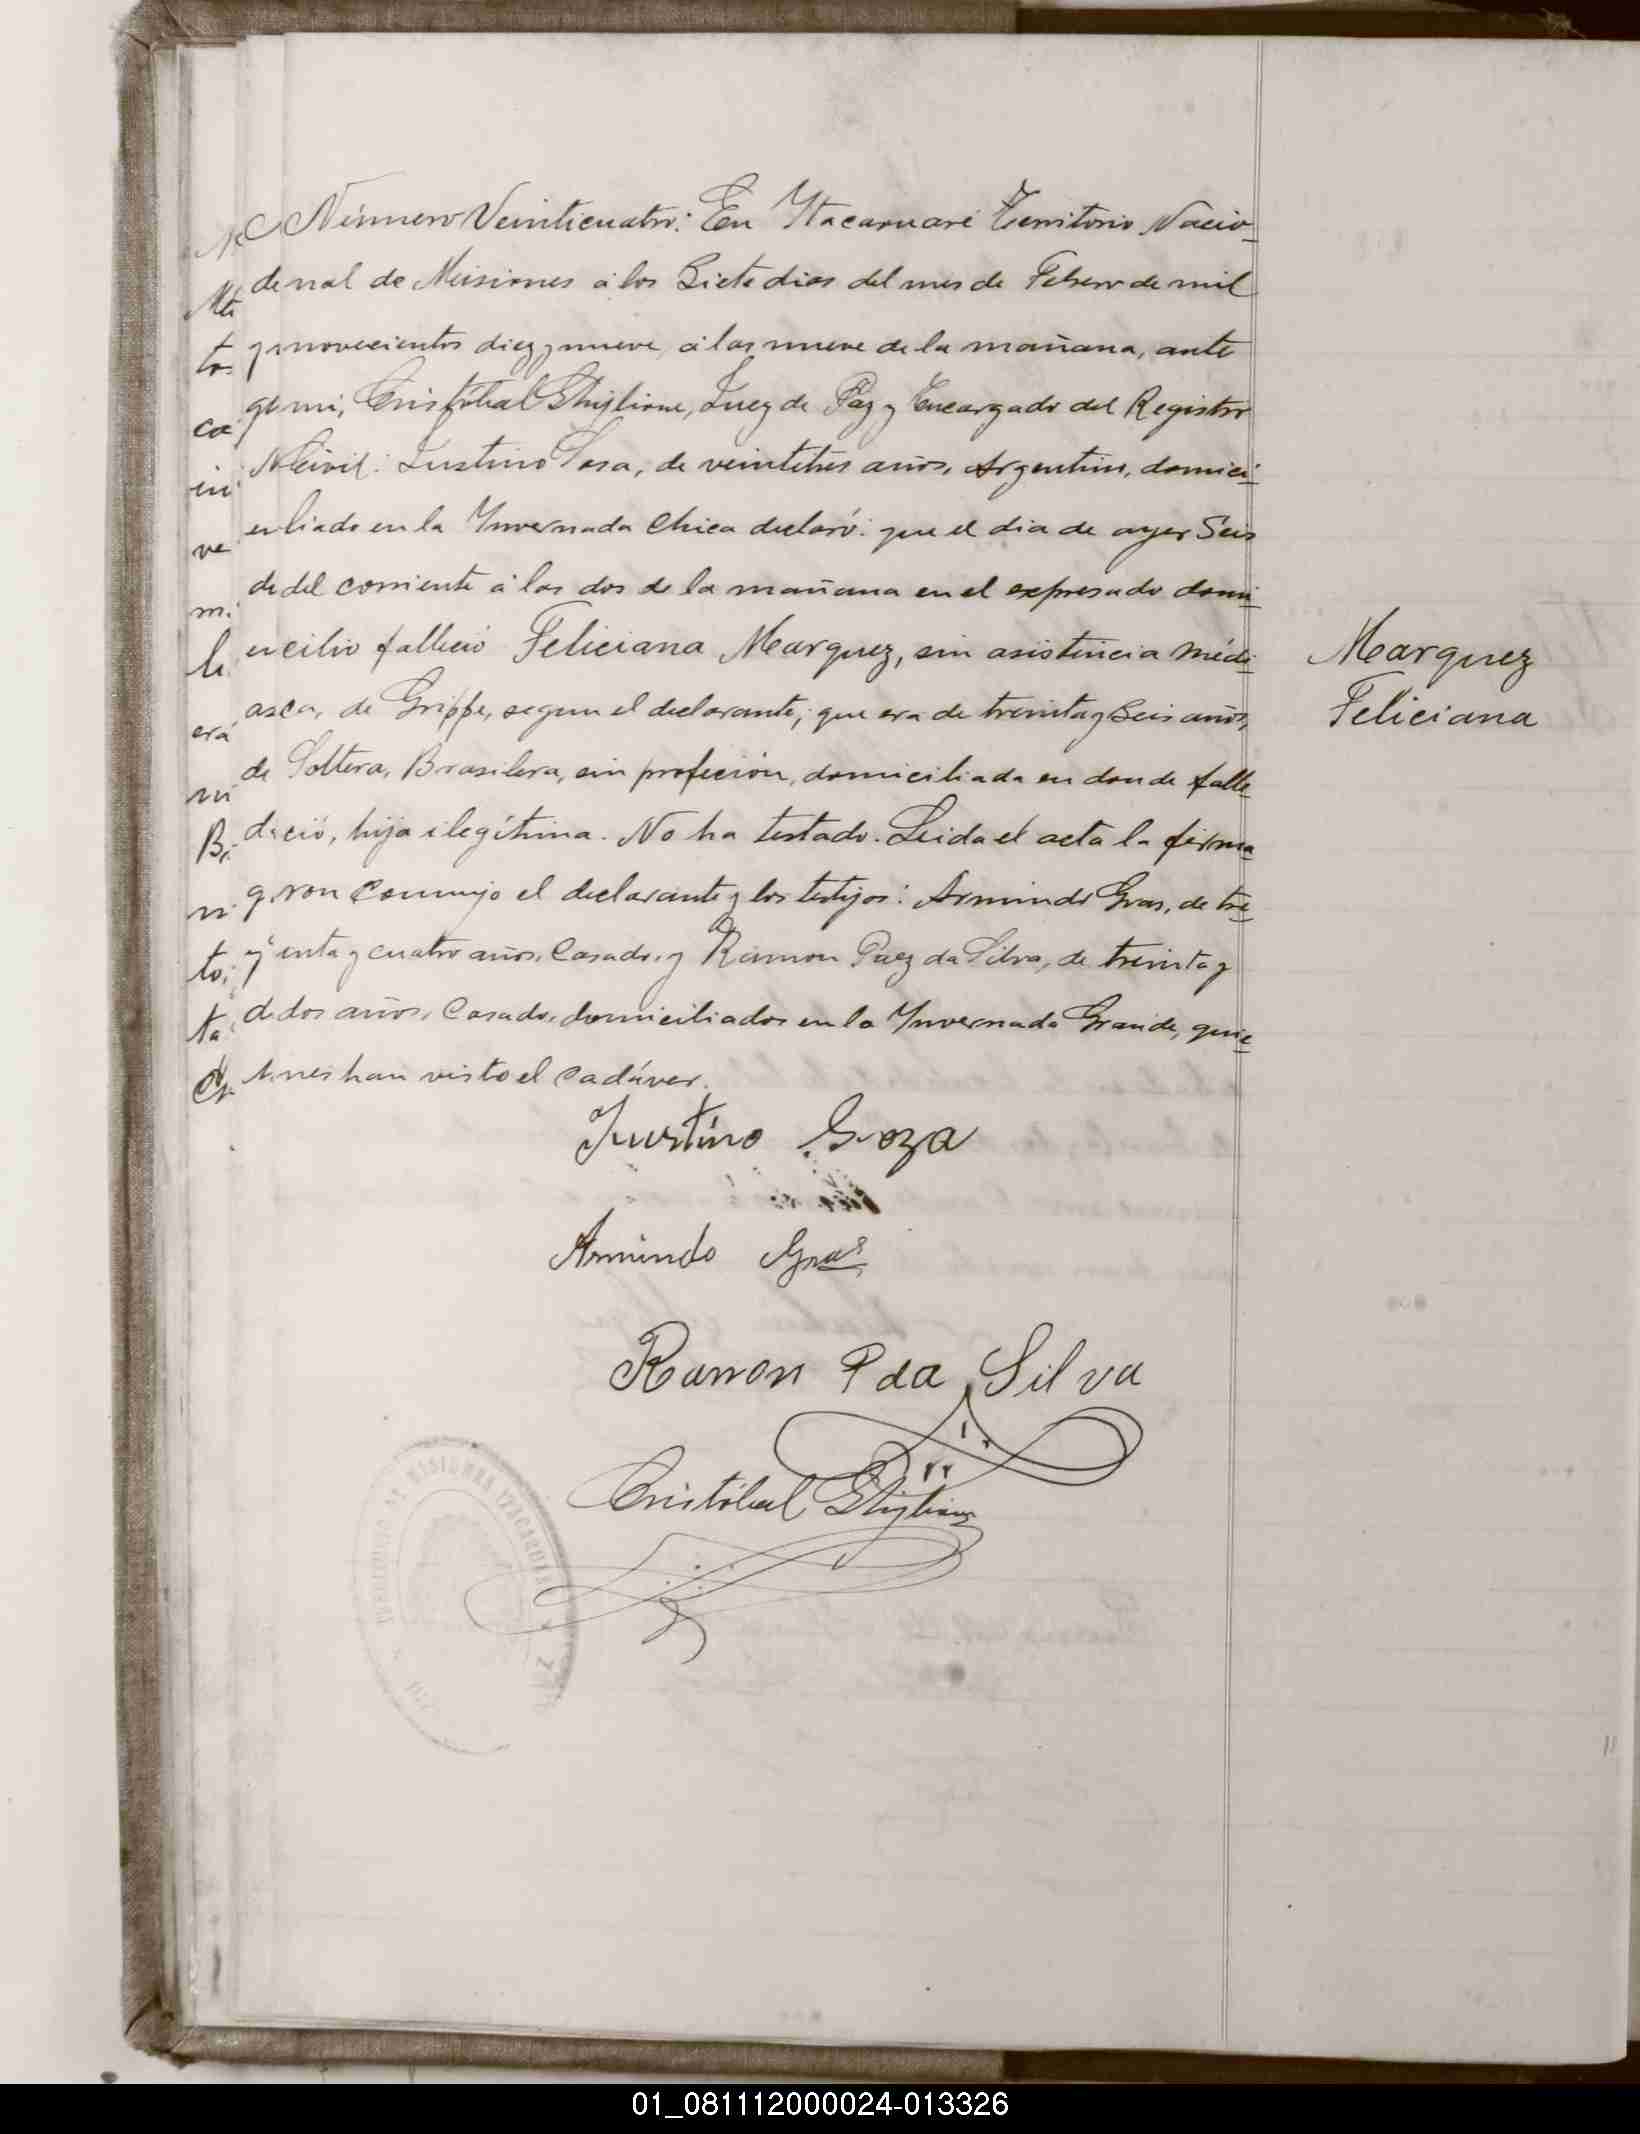 Número Veinticuatro: En Itacaruaré Territorio Nacio-
nal de Misiones á los Siete dias del mes de Febrero de mil
novecientos diez y nueve, á las nueve de la mañana, ante
mi, Cristóbal Ghiglione, Juez de Paz y Encargado del Registro
Civil: Justino Sosa, de veintitres años, Argentino, domici-
liado en la Invernada Chica declaró: que el dia de ayer Seis
del corriente á las dos de la mañana en el expresado domi-
cilio falleció Feliciana Marquez, sin asistencia médi-
ca, de Grippe, segun el declarante; que era de treinta y Seis años,
Soltera, Brasilera, sin profeción, domiciliada en donde falle-
ció, hija ilegítima. No ha testado. Leida el acta la firma-
ron conmigo el declarante y los testigos: Armindo Gras, de tre-
inta y cuatro años, Casado, y Ramon Paez da Silva, de treinta y
dos años, Casado, domiciliados en la Invernada Grande, quie-
nes han visto el cadáver.
Marquez
Feliciana
Justino Soza
Armindo Gras
Ramon P da Silva
Cristóbal Ghiglione
01_081112000024-013326